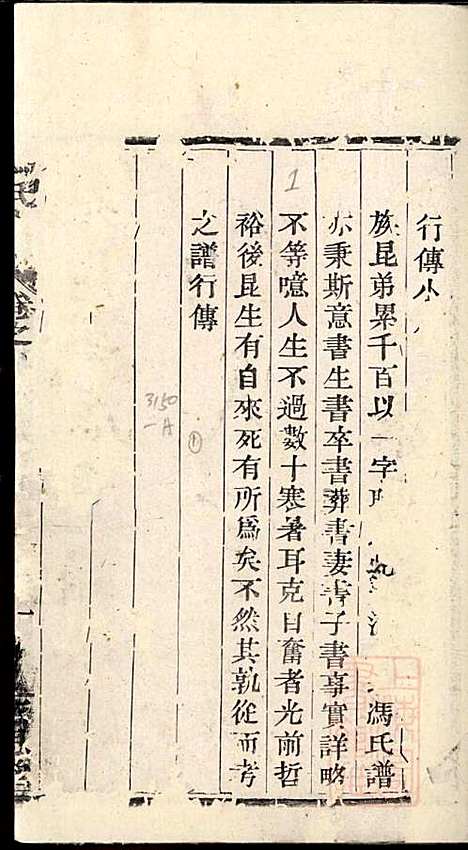 行傳小
族昆弟累千百以一字 馮氏譜
亦秉斯意書生書卒書葬書妻書子書事實詳略
不等噫人生不過數十寒暑耳克自奮者光前哲
裕後昆生有自來死有所為矣不然其孰從而考
之譜行傳
1
3150
-A
①